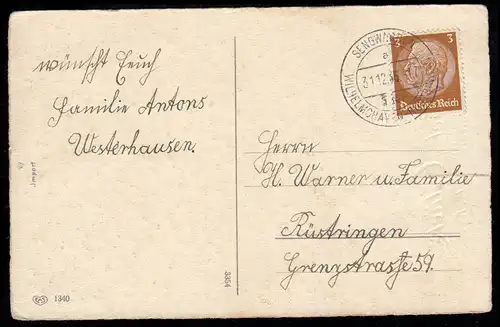 wünscht Euch
Familie Antons
Westerhausen.
Import
1340
3354
SENGWARDEN
WILHELMSHAVEN
31.12.35
3 3
Deutsches Reich
Herrn
H. Warner u. Familie
Rüstringen
Grenzstrasse 59.